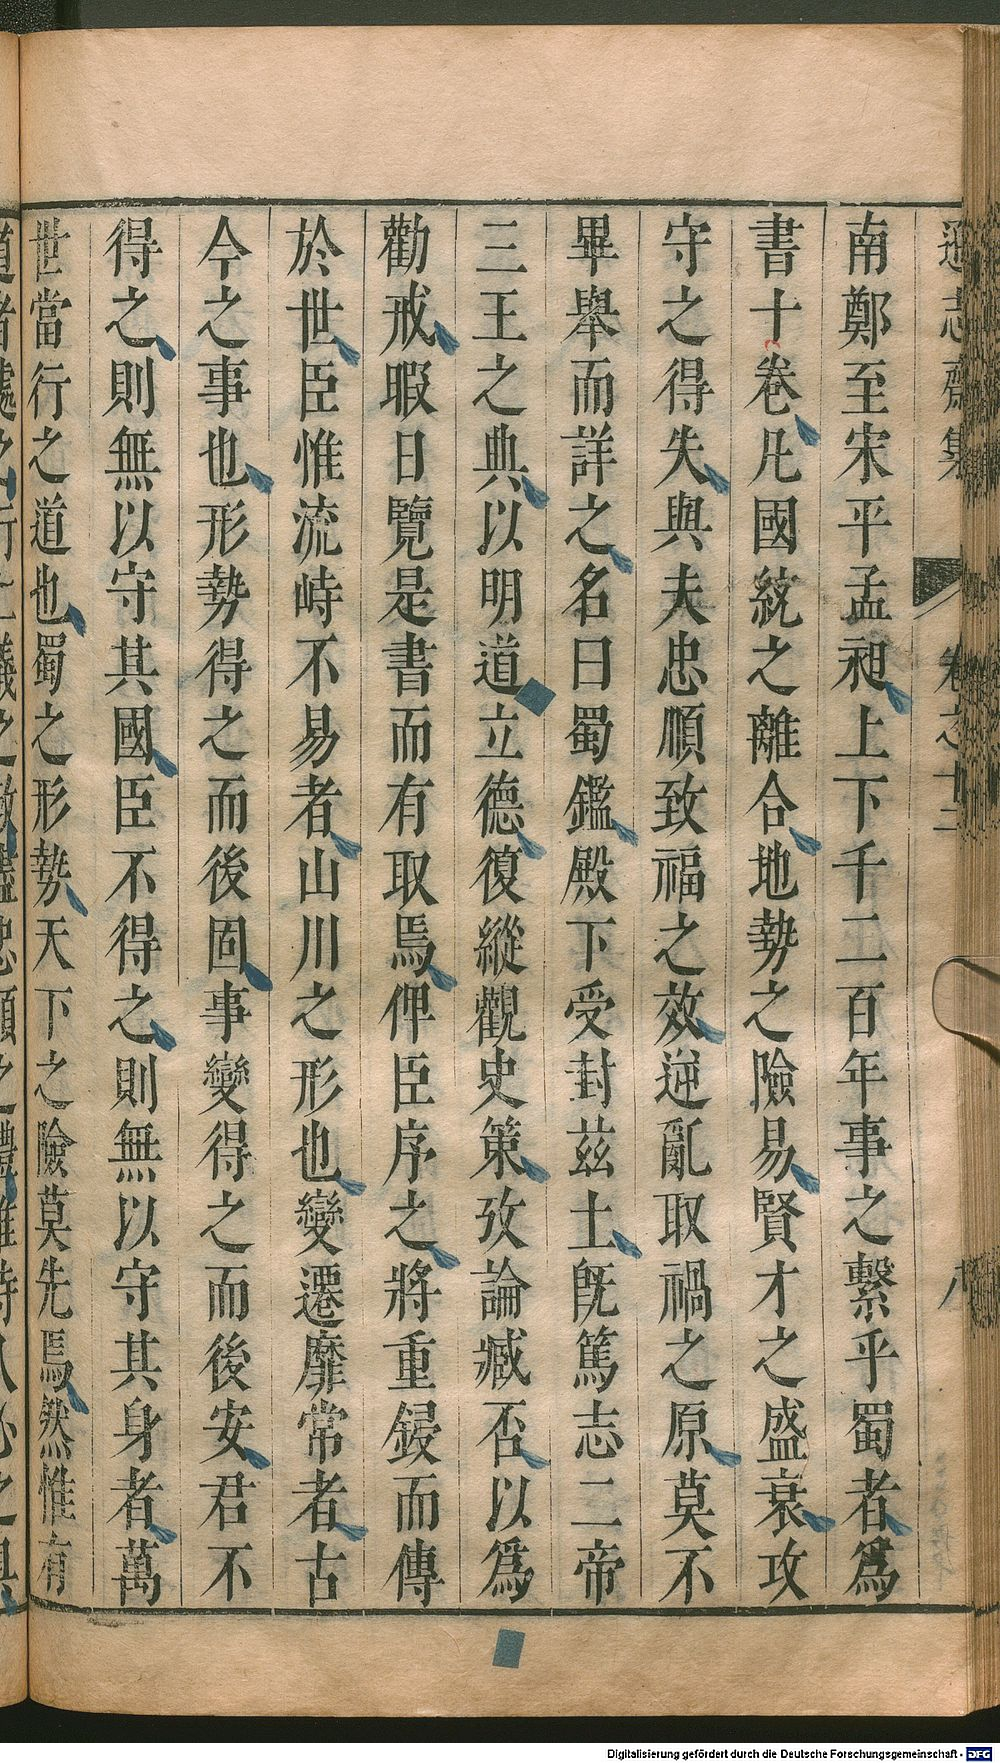 遜志齋集 卷之十二 八
南鄭至宋平孟昶上下千二百年事之繫乎蜀者爲
書十卷凡國統之離合地勢之險易賢才之盛衰攻
守之得失與夫忠順致福之效逆亂取禍之原莫不
畢舉而詳之名曰蜀鑑殿下受封茲土既篤志二帝
三王之典以明道立德復縱觀史策攷論臧否以爲
勸戒暇日覽是書而有取焉俾臣序之將重鋟而傳
於世臣惟流峙不易者山川之形也變遷靡常者古
今之事也形勢得之而後固事變得之而後安君不
得之則無以守其國臣不得之則無以守其身者萬
世當行之道也蜀之形勢天下之險莫先焉然惟有
Digitalisierung gefördert durch die Deutsche Forschungsgemeinschaft - DFG